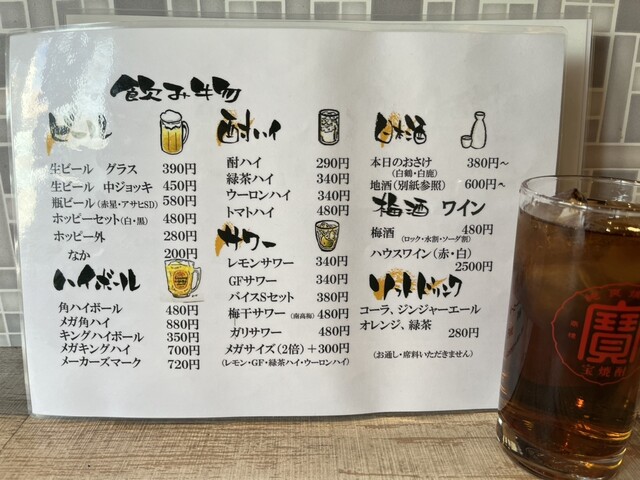 飲み物
ビール
生ビール グラス 390円
生ビール 中ジョッキ 450円
瓶ビール(赤星・アサヒSD) 580円
ホッピーセット(白・黒) 480円
ホッピー外 280円
なか 200円
ハイボール
角ハイボール 480円
メガ角ハイ 880円
キングハイボール 350円
メガキングハイ 700円
メーカーズマーク 720円
酎ハイ
酎ハイ 290円
緑茶ハイ 340円
ウーロンハイ 340円
トマトハイ 480円
サワー
レモンサワー 340円
GFサワー 340円
バイスSセット 380円
梅干サワー(南高梅) 480円
ガリサワー 480円
メガサイズ(2倍)+300円
(レモン・GF・緑茶ハイ・ウーロンハイ)
日本酒
本日のおさけ 380円~
(白鶴・白鹿)
地酒(別紙参照) 600円~
梅酒 ワイン
梅酒 480円
(ロック・水割・ソーダ割)
ハウスワイン(赤・白)
2500円
ソフトドリンク
コーラ、ジンジャーエール
オレンジ、緑茶
280円
(お通し・席料いただきません)
寶
宝焼酎